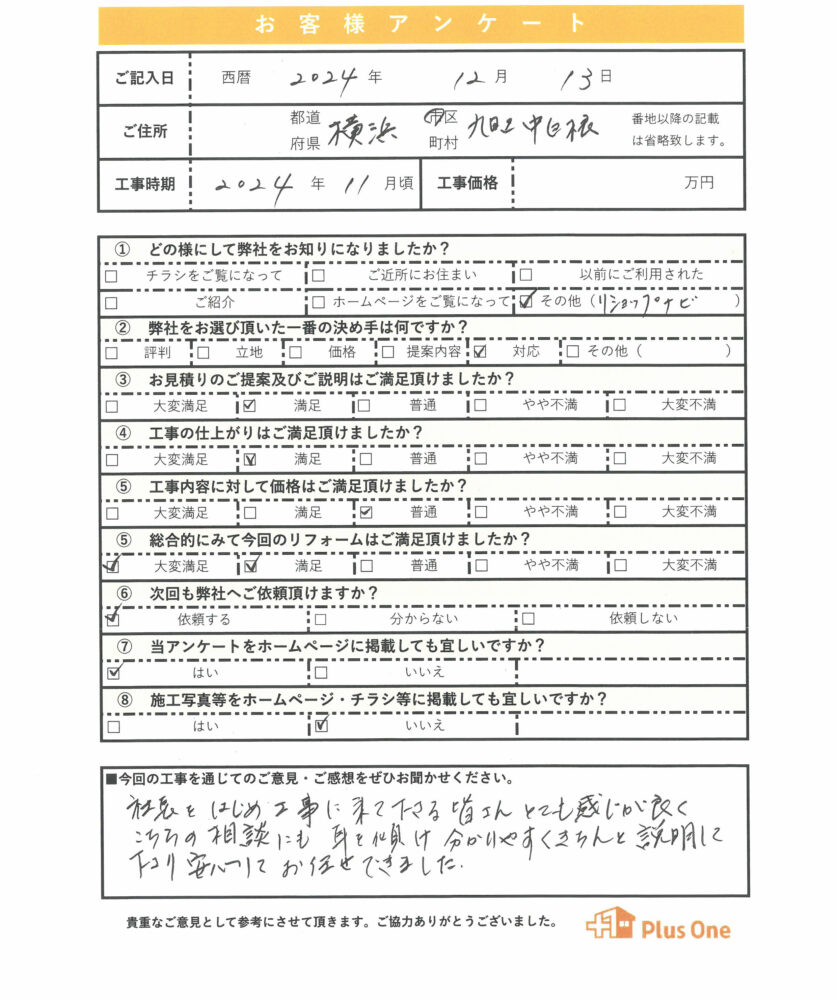 お客様アンケート
ご記入日 西暦 2024 年 12 月 13 日
ご住所 都道府県 横浜 市区町村 旭区 中白根 番地以降の記載は省略致します。
工事時期 2024 年 11 月頃 工事価格 万円
① どの様にして弊社をお知りになりましたか？
□ チラシをご覧になって □ ご近所にお住まい □ 以前にご利用された
□ ご紹介 □ ホームページをご覧になって ☑ その他（リショップナビ ）
② 弊社をお選び頂いた一番の決め手は何ですか？
□ 評判 □ 立地 □ 価格 □ 提案内容 ☑ 対応 □ その他（ ）
③ お見積りのご提案及びご説明はご満足頂けましたか？
□ 大変満足 ☑ 満足 □ 普通 □ やや不満 □ 大変不満
④ 工事の仕上がりはご満足頂けましたか？
□ 大変満足 ☑ 満足 □ 普通 □ やや不満 □ 大変不満
⑤ 工事内容に対して価格はご満足頂けましたか？
□ 大変満足 □ 満足 ☑ 普通 □ やや不満 □ 大変不満
⑤ 総合的にみて今回のリフォームはご満足頂けましたか？
☑ 大変満足 ☑ 満足 □ 普通 □ やや不満 □ 大変不満
⑥ 次回も弊社へご依頼頂けますか？
☑ 依頼する □ 分からない □ 依頼しない
⑦ 当アンケートをホームページに掲載しても宜しいですか？
☑ はい □ いいえ
⑧ 施工写真等をホームページ・チラシ等に掲載しても宜しいですか？
□ はい ☑ いいえ
■今回の工事を通じてのご意見・ご感想をぜひお聞かせください。
社長をはじめ工事に来て下さる皆さんとても感じが良く
こちらの相談にも耳を傾け分かりやすくきちんと説明して
下さり安心してお任せできました.
貴重なご意見として参考にさせて頂きます。ご協力ありがとうございました。
Plus One